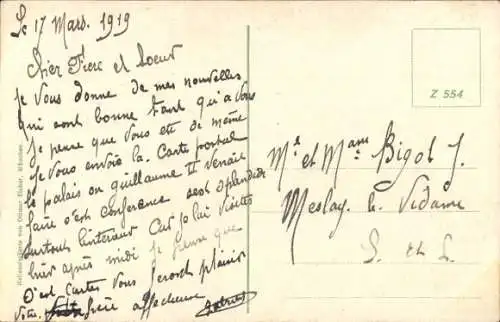 Le 17 Mars. 1919
Cher Frère et Soeur
je vous donne de mes nouvelles
qui sont bonne tant qu'a vous
je pense que vous ett de même
je vous envoie la. Carte postal
le palais on guillaume II Venait
faire s'est conference sest splendide
surtout linterieur Car je lui visitès
hier après midi je pense que
s'est Cartes vous feront plaisir
votre frère affectueux
Mr et Mme Bigot J.
Meslay. le Vidame
E. et L.
Z 554